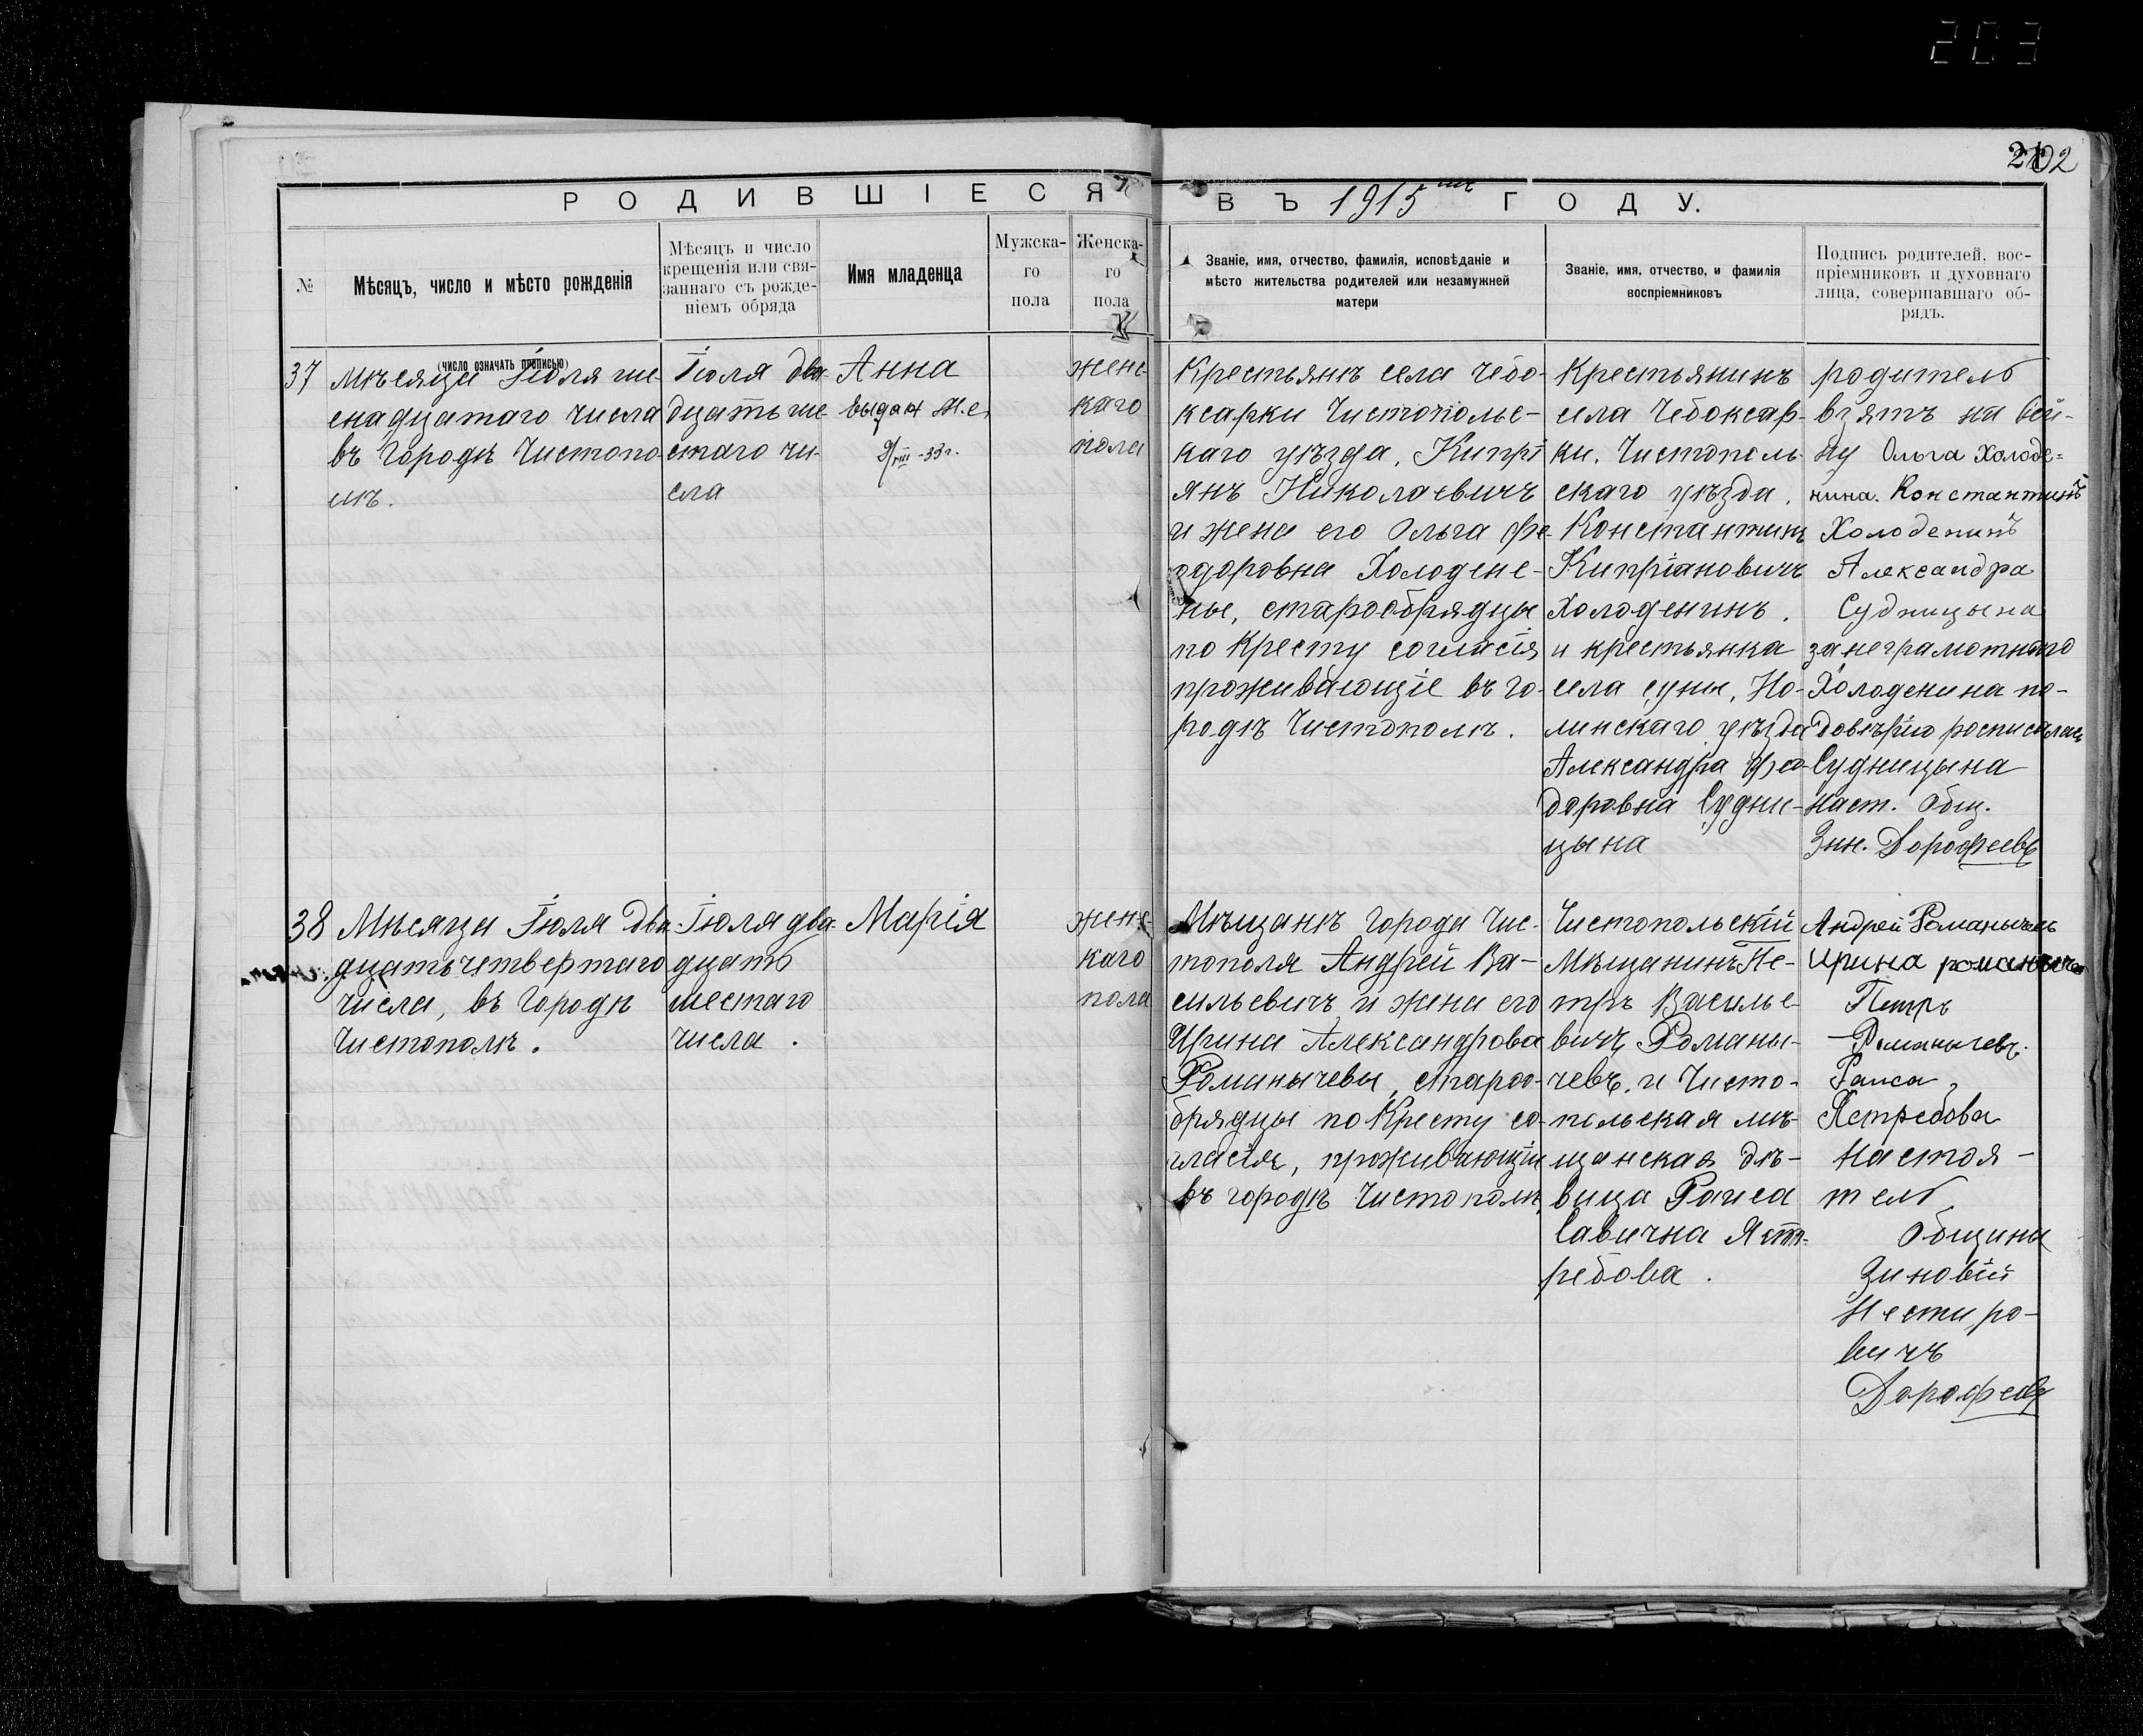 203
202
РОДИВШІЕСЯ
ВЪ 1915 ГОДУ.
№
Мѣсяцъ, число и мѣсто рожденія
(число означать прописью)
Мѣсяцъ и число
крещенія или свя-
заннаго съ рожде-
ніемъ обряда
Имя младенца
Мужска-
го
пола
Женска-
го
пола
Званіе, имя, отчество, фамилія, исповѣданіе и
мѣсто жительства родителей или незамужней
матери
Званіе, имя, отчество, и фамилія
воспріемниковъ
Подпись родителей, вос-
пріемниковъ и духовнаго
лица, совершавшаго об-
рядъ.
37
Мѣсяца Іюля ше-
снадцатаго числа
въ Городѣ Чистопо
лѣ.
Іюля два-
дцать ше
стаго чи-
сла
Анна
выдан М.е.
9/VIII-33г.
женс
каго
пола
Крестьянѣ села Чебо-
ксарки Чистопольс-
каго уѣзда, Кипрі
янъ Николаевичъ
и жена его Ольга Фе-
одоровна Холодени-
ны, старообрядцы
по Кресту согласія
проживающіе въ Го-
родѣ Чистополѣ.
Крестьянинъ
села Чебоксар-
ки, Чистополь-
скаго уѣзда,
Константинъ
Кипріановичъ
Холоденинъ.
и крестьянка
села Суны, Но-
линскаго уѣзда
Александра Фео-
доровна Судни-
цына
родитель
взятъ на вой-
ну Ольга Холоде=
нина. Константинъ
Холоденинъ
Александра
Судницына
за неграмотнаго
Холоденина по-
довѣрію росписалась
Судницына
Наст. Общ.
Зин. Дорофеевъ
38
Мѣсяца Іюля два-
дцать четвертаго
числа, въ Городѣ
Чистополѣ.
Іюля два-
дцать
шестаго
числа.
Марія
женс-
каго
пола
Мѣщанѣ Города Чис-
тополя Андрей Ва-
сильевичъ и жена его
Ирина Александрова
Романычевы, староо-
брядцы по Кресту со-
гласія, проживающіи
въ городѣ Чистополѣ
Чистопольскій
Мѣщанинъ Пе-
тръ Василье-
вичъ Романы-
чевъ, и Чисто-
польская мѣ-
щанская дѣ-
вица Раиса
Савична Яст-
ребова.
Андрей Романычевъ
Ирина романычева
Петръ
Романычевъ.
Раиса
Ястребова
Настоя-
тель
Общины
Зиновій
Нестиро-
вичъ
Дорофеевъ